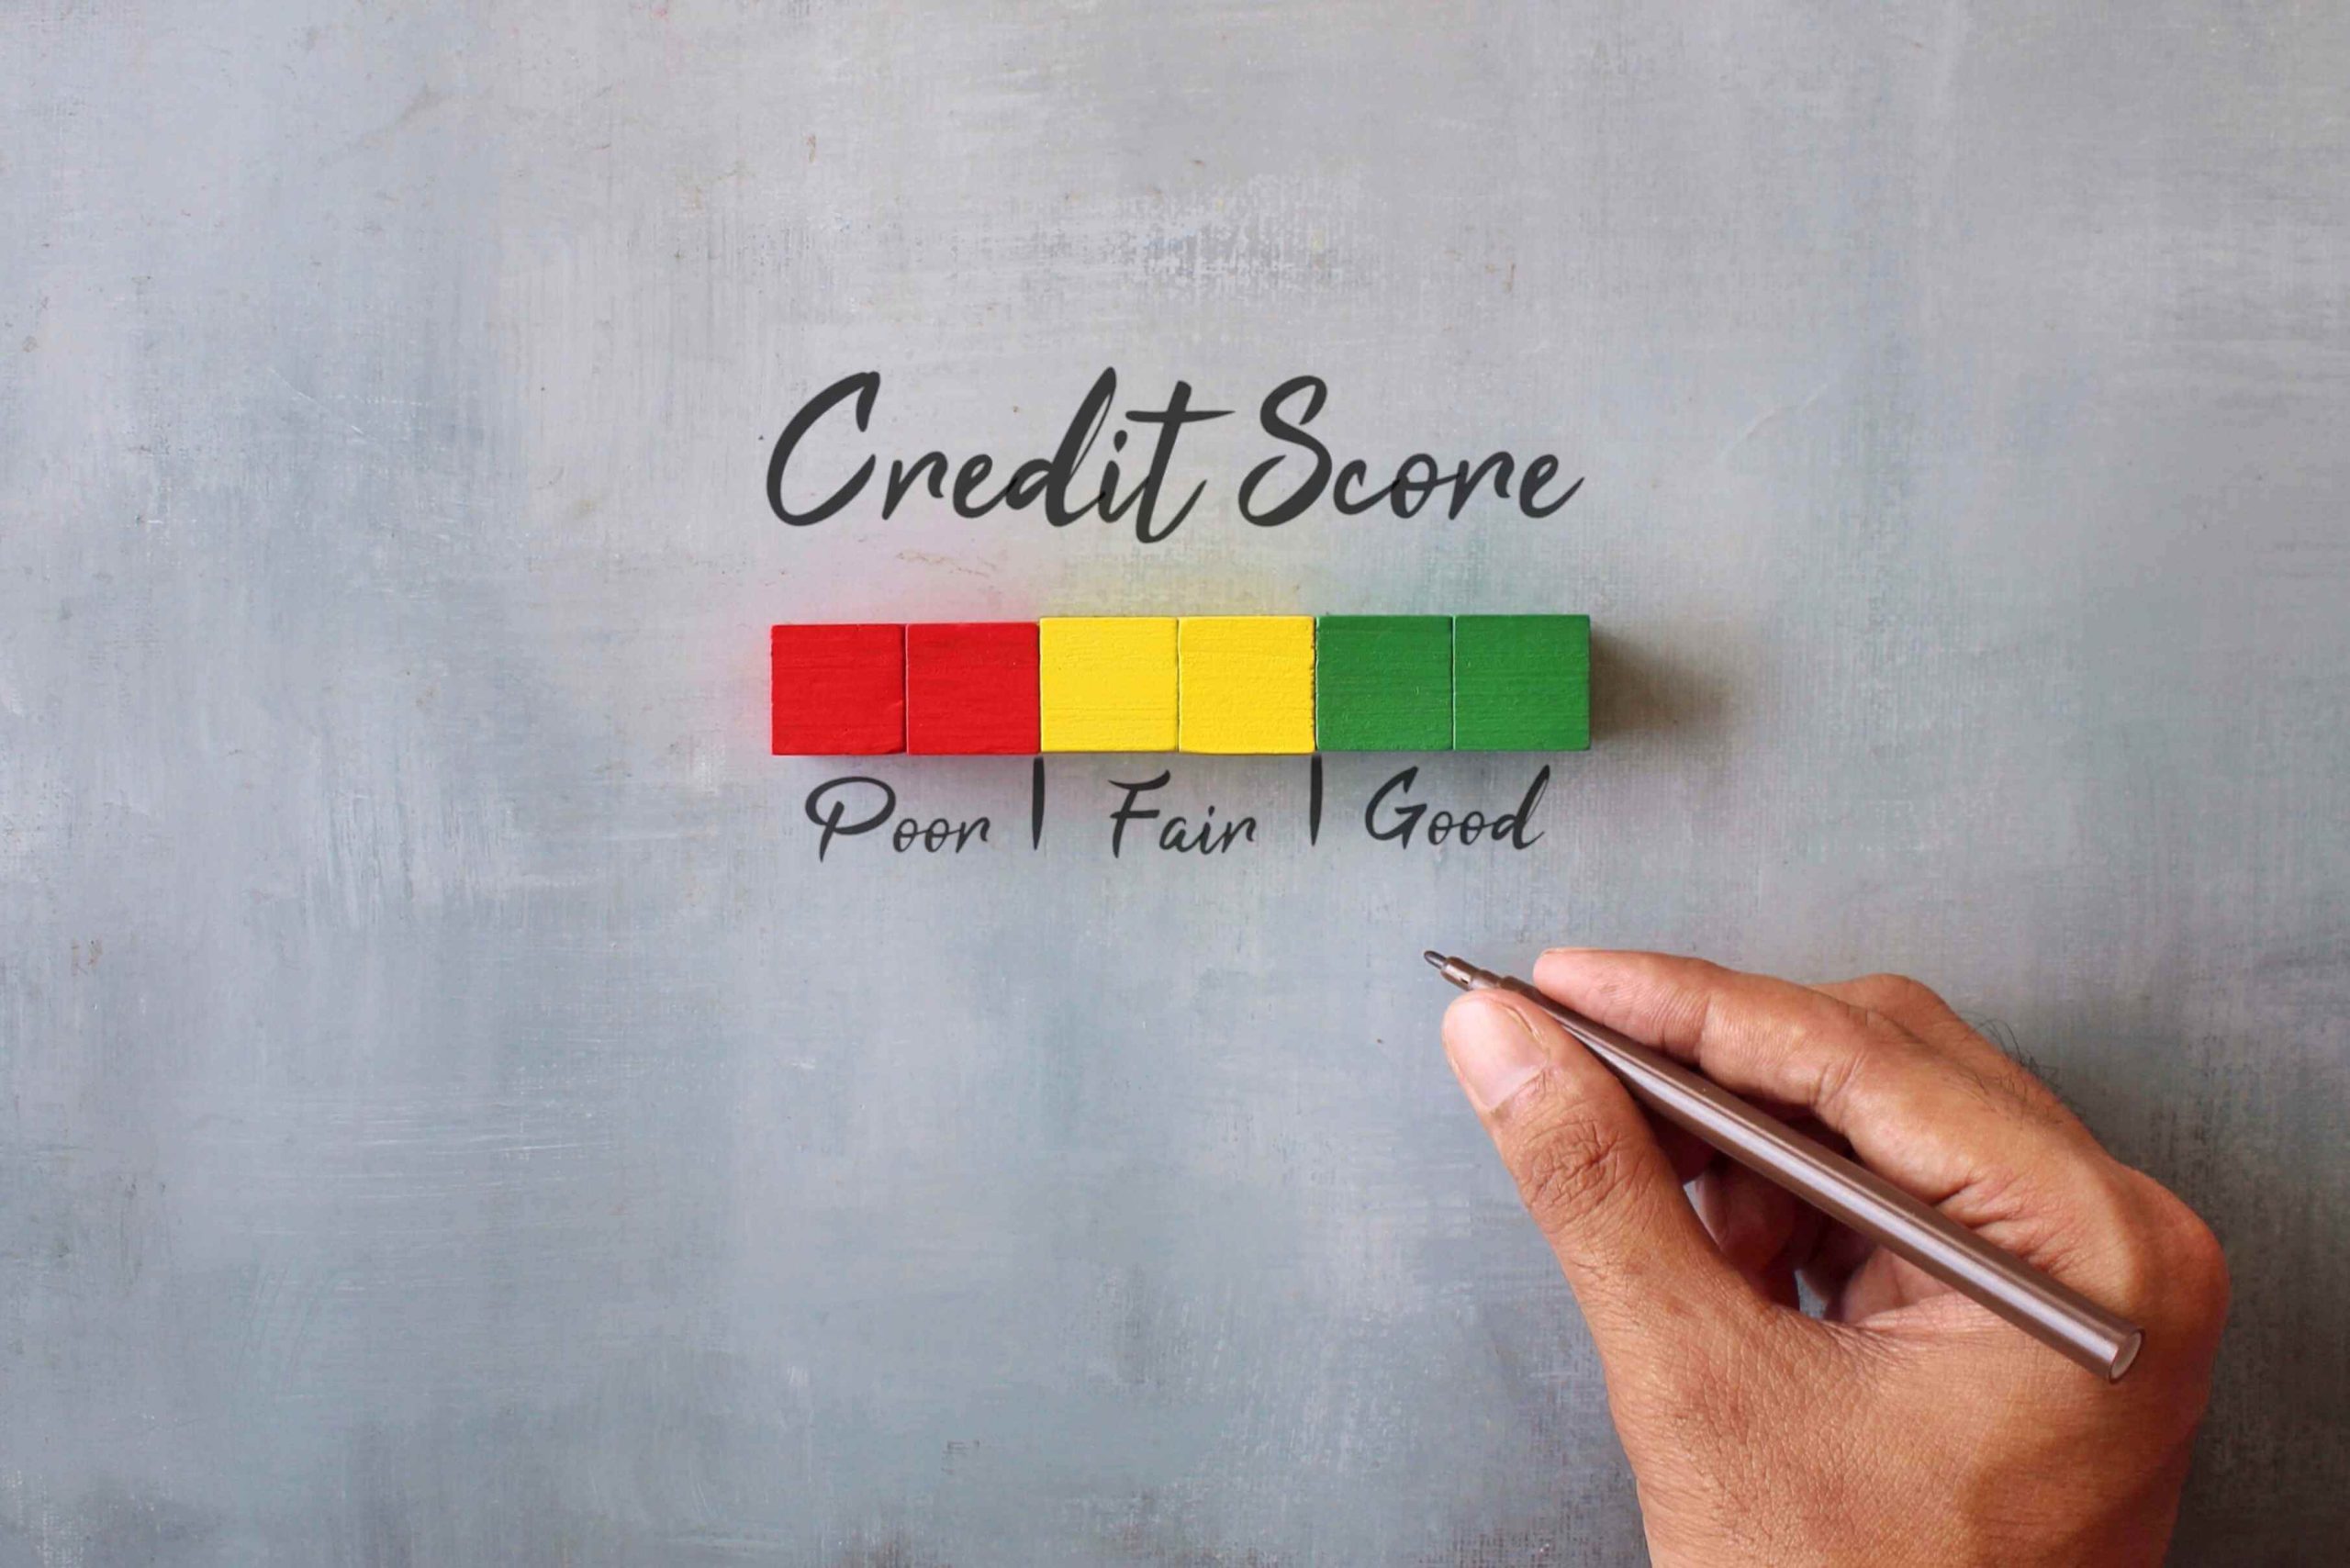 Credit Score
Poor | Fair | Good